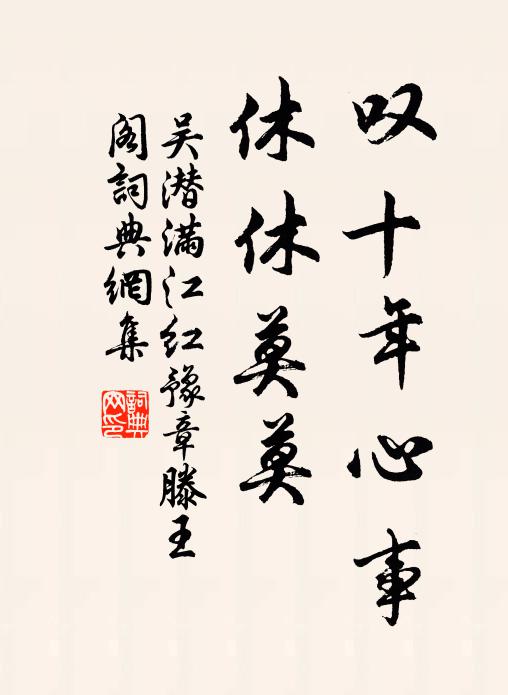 叹十年心事
休休莫莫
吴潜满江红豫章滕王
阁詞典網集
詞典
网印